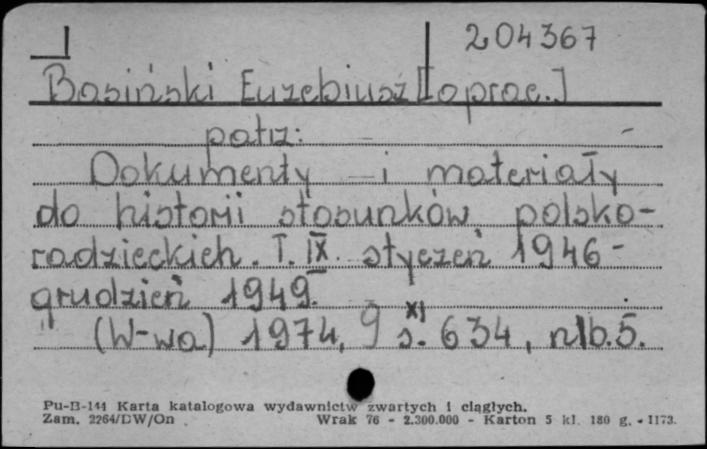 204367
Basiński Euzebiusz [oprac.]
patrz:
Dokumenty i materiały
do historii stosunków polsko-
radzieckich. T. IX. styczeń 1946 -
grudzień 1949.
(W-wa) 1974, 9 s. XI 634, nlb. 5.
Pu-B-144 Karta katalogowa wydawnictw zwartych i ciągłych.
Zam. 2264/DW/On Wrak 76 - 2.300.000 - Karton 5 kl. 180 g. - 1173.